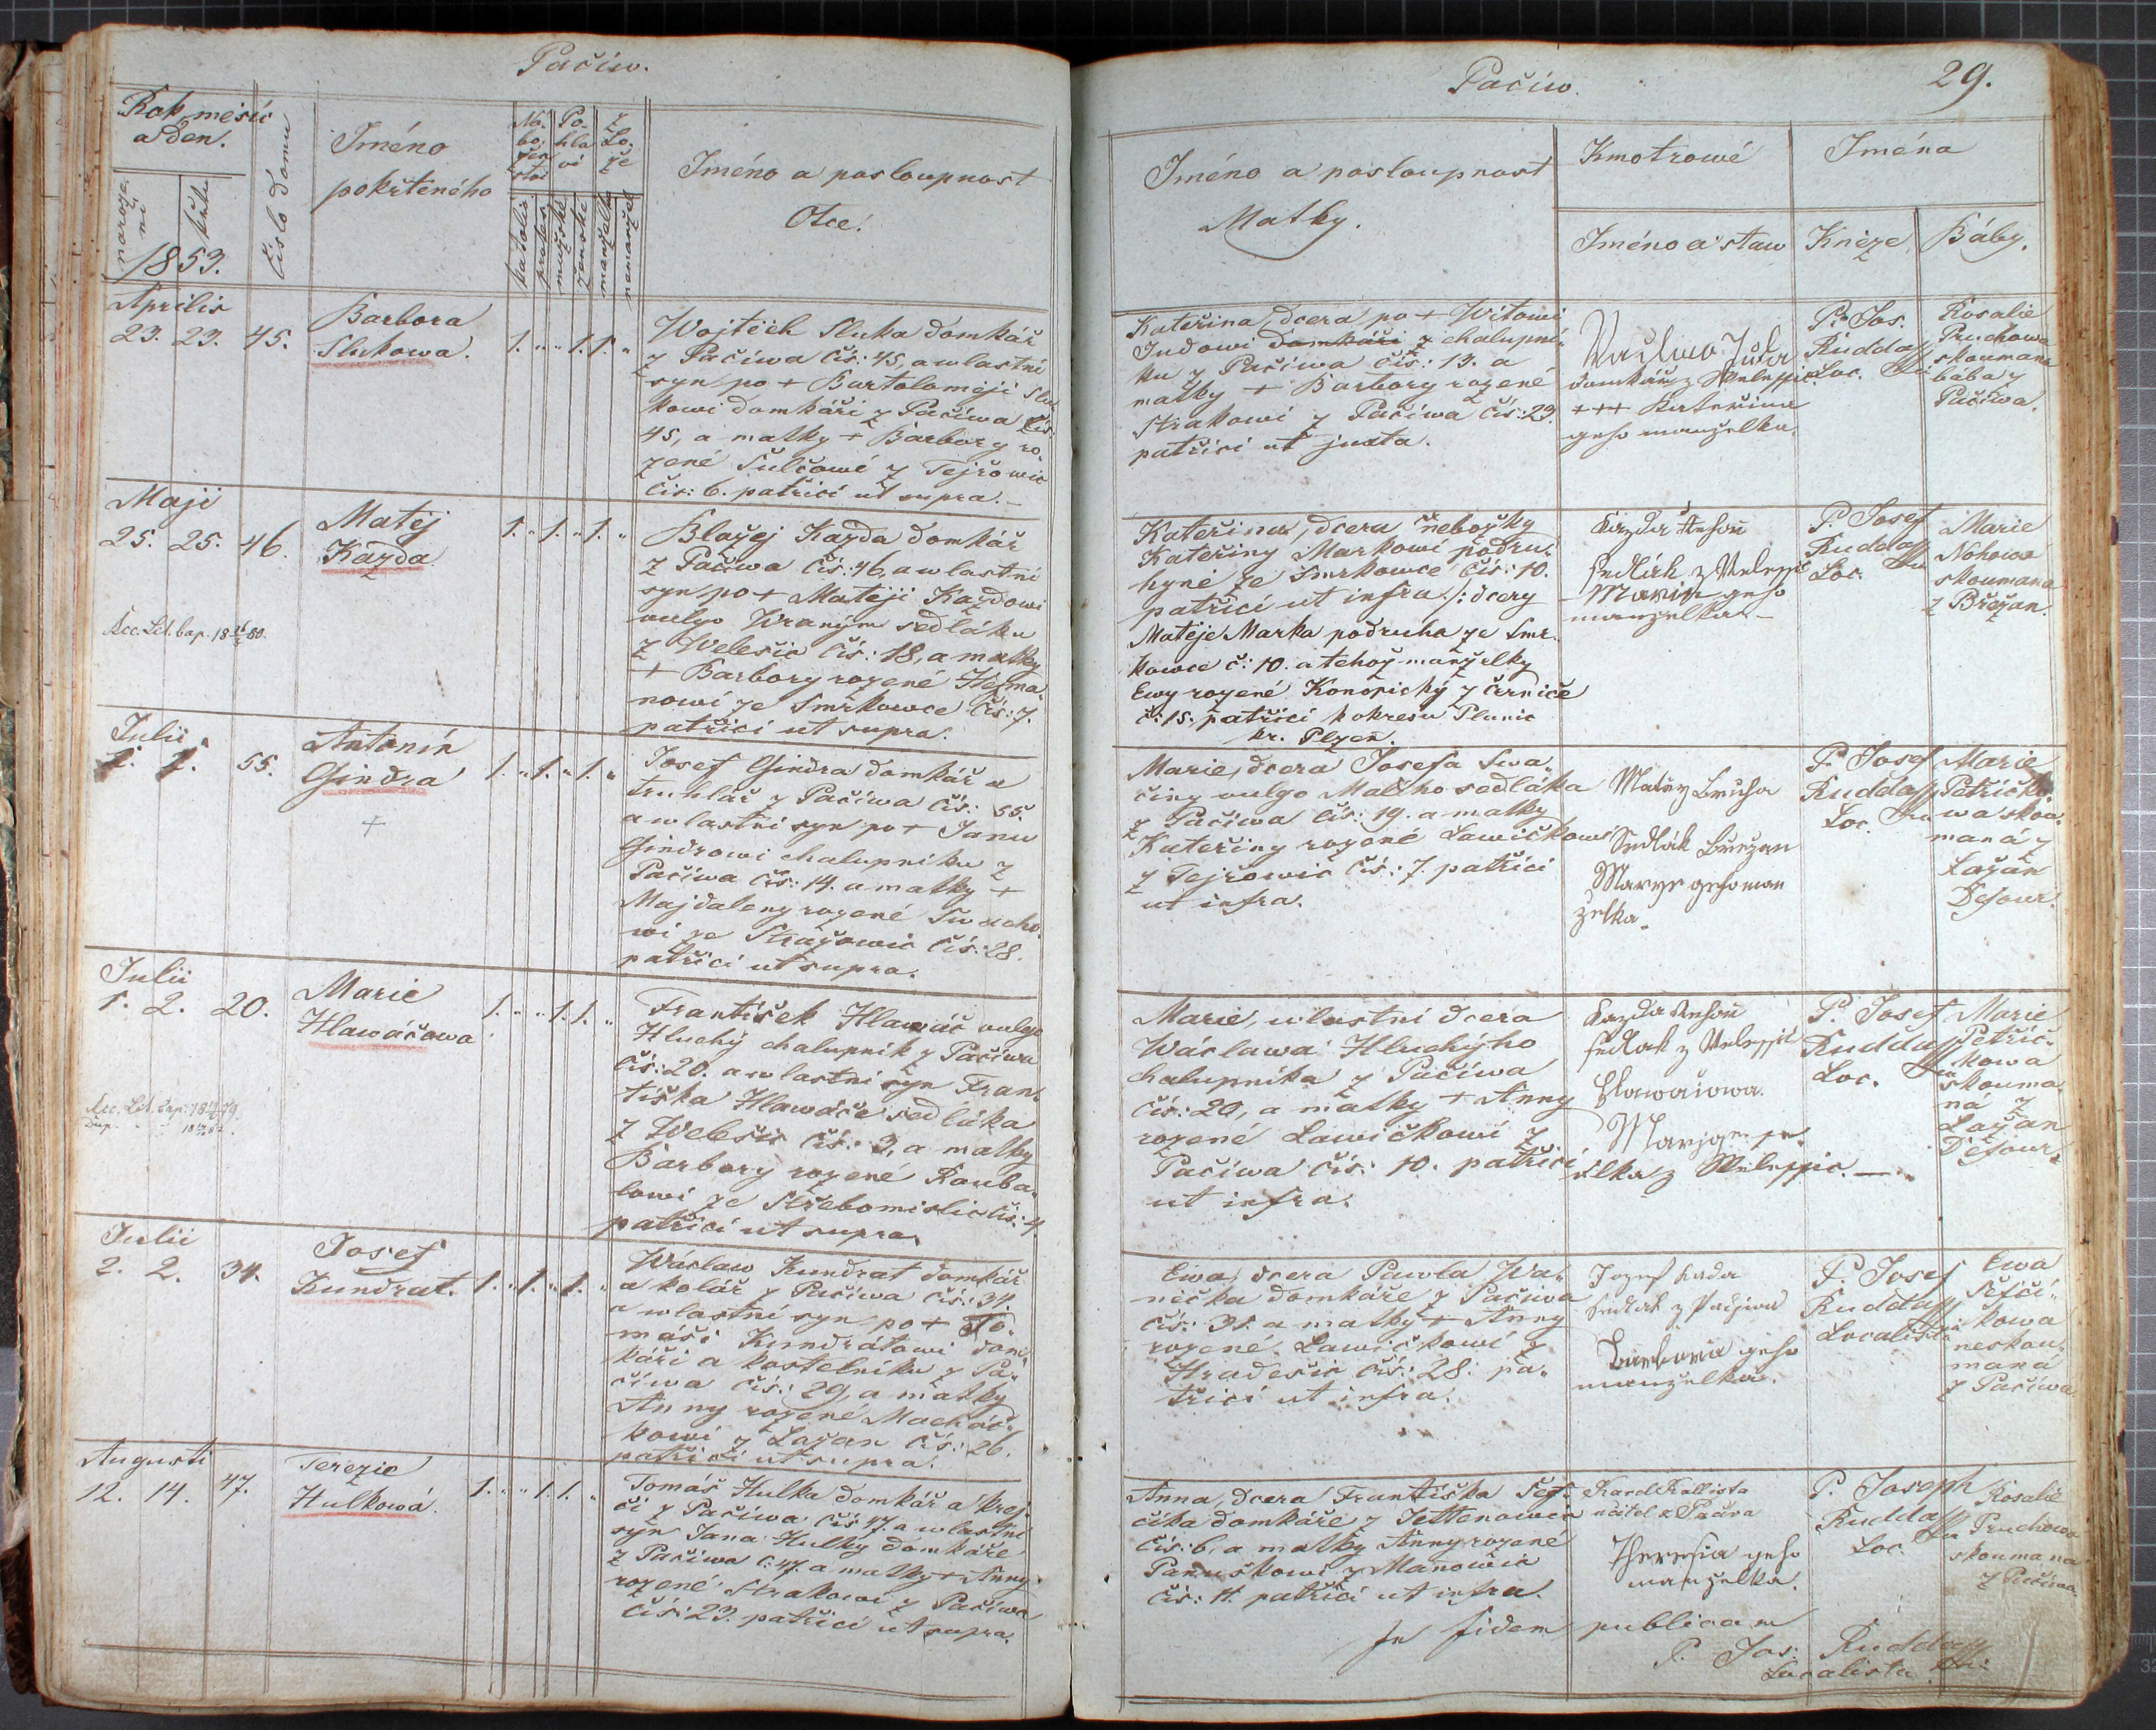 Pačiw.
Rok, měsíc
a den.
narozeni
křtu
1853.
Číslo domu
Iméno
pokřteného
Nábo-
žen-
stwí
Po-
hla
wí
Lo-
že
katolic
protes.
mužské
ženské
manželské
nemanžel.
Iméno a posloupnost
Otce.
Aprilis
23. 23. 45.
Barbora
Slukowa.
1. " " 1. 1. "
Wojtěch Sluka domkář
z Pačiwa čís: 45, a wlastní
syn po + Bartoloměji Slu-
kowi domkáři z Pačiwa čís:
45, a matky + Barbory ro-
zené Šulcowé z Tejřowic
čís: 6. patřící ut supra.
Maji
25. 25. 46.
Matěj
Kazda
1. " 1. " 1. "
Blažej Kazda domkář
z Pačiwa čís: 46, a wlastní
syn po + Matěji Kazdowi
vulgo Wraným sedláku
z Welešic čís: 18, a matky
+ Barbory rozené Heřma-
nowi ze Smrkowce čís: 7.
patřící ut supra.
Julii
1. 1. 55.
Antonín
Gindra
+
1. " 1. " 1. "
Josef Gindra domkář a
truhlář z Pačiwa čís: 55.
a wlastní syn po + Janu
Gindrowi chalupníku z
Pačiwa čís: 14. a matky +
Majdaleny rozené
wi ze Stražowic čís: 28.
patřící ut supra.
Julii
1. 2. 20.
Marie
Hlawáčowa
1. " " 1. 1. "
František Hlawáč vulgo
Hluchý chalupník z Pačiwa
čís: 20. a wlastní syn Fran-
tiška Hlawáče sedláka
z Welešic čís: 3, a matky
Barbory rozené Rouba-
lowi ze Střebomislic čís: 4
patřící ut supra.
Julii
2. 2. 34.
Josef
Kundrat.
1. " 1. " 1. "
Wáclaw Kundrat domkář
a kolář z Pačiwa čís: 34.
a wlastní syn po + To-
máši Kundrátowi dom-
káři a kostelníku z Pa-
čiwa čís: 29, a matky
Anny rozené Macháč-
kowi z Lažan čís: 26.
patřící ut supra.
Augusti
12. 14. 47.
Terezie
Hulkowá.
1. " " 1. 1. "
Tomáš Hulka domkář a krej-
čí z Pačiwa čís 47. a wlastní
syn Jana Hulky domkáře
z Pačiwa č: 47. a matky + Anny
rozené Strakowi z Pačiwa
čís: 23. patřící ut supra.
Pačiw.
29.
Iméno a posloupnost
Matky.
Kmotrowé
Iména
Iméno a staw
Kněze
Báby.
Kateřina, dcera po + Witowi
Judowi domkáři z chalupní-
ku z Pačiwa čís: 13. a
matky + Barbory rozené
Strakowi z Pačiwa čís: 23.
patřící ut juxta.
domkář z Welessic
+++ Kateřina
geho manželka.
P. Jos.
Rudda
Loc.
Rosalie
Pruchowa
skoumana
bába z
Pačiwa.
Kateřina, dcera nebožky
Kateřiny Markowi podru-
hyně ze Smrkowce čís: 10.
patřící ut infra /: dcery
Matěje Marka podruha ze Smr-
kowce č: 10. a tehož manželky
Ewy rozené Konopický z Černiče
č: 15. patřící k okresu Planic
kr. Plzeň.
Kazda
sedlák z Welessic
Marie geho
manželka.
P. Josef
Rudda
Loc.
Marie
Nohowa
skoumana
z Břežan.
Marie, dcera Josefa Swa-
činy vulgo Malýho sedláka
z Pačiwa čís: 19. a matky
Kateřiny rozené Lawičkowi
z Tejřowic čís: 7. patřící
ut infra.
Sedlák Břežan
Marye geho man
želka.
P. Josef
Rudda
Loc.
Marie
Petřičko-
wa skou-
maná z
Lažan
Defour.
Marie, wlastní dcera
Wáclawa Hluchýho
chalupníka z Pačiwa
čís: 20, a matky + Anny
rozené Lawičkowi z
Pačiwa čís: 10. patřící
ut infra.
Kazda
sedlak z Welessic
Hlawačowa
z Welessic.
P. Josef
Rudda
Loc.
Marie
Petřič-
kowa
skouma-
ná z
Lažan
Defour.
Ewa, dcera Pawla Wa-
níčka domkáře z Pačiwa
čís: 31. a matky + Anny
rozené Lawičkowi z
Hradešic čís: 28. pa-
třící ut infra.
Jozef Lada
sedlak z Pačiwa
Barbora geho
manželka.
P. Josef
Rudda
Localista
Ewa
Šefčí-
kowa
neskou-
maná
z Pačiwa
Anna, dcera Františka Šef-
číka domkáře z Tettenowic
čís: 6, a matky Anny rozené
Panuškowi z Manowic
čís: 11. patřící ut infra.
Karel Kallista
učitel z Pačiva
Theresia geho
manželka.
P. Joseph
Rudda
Loc.
Rosalie
Pruchowa
skoumana
z Pačiwa.
In fidem publicam
P. Jos. Rudda
Localista